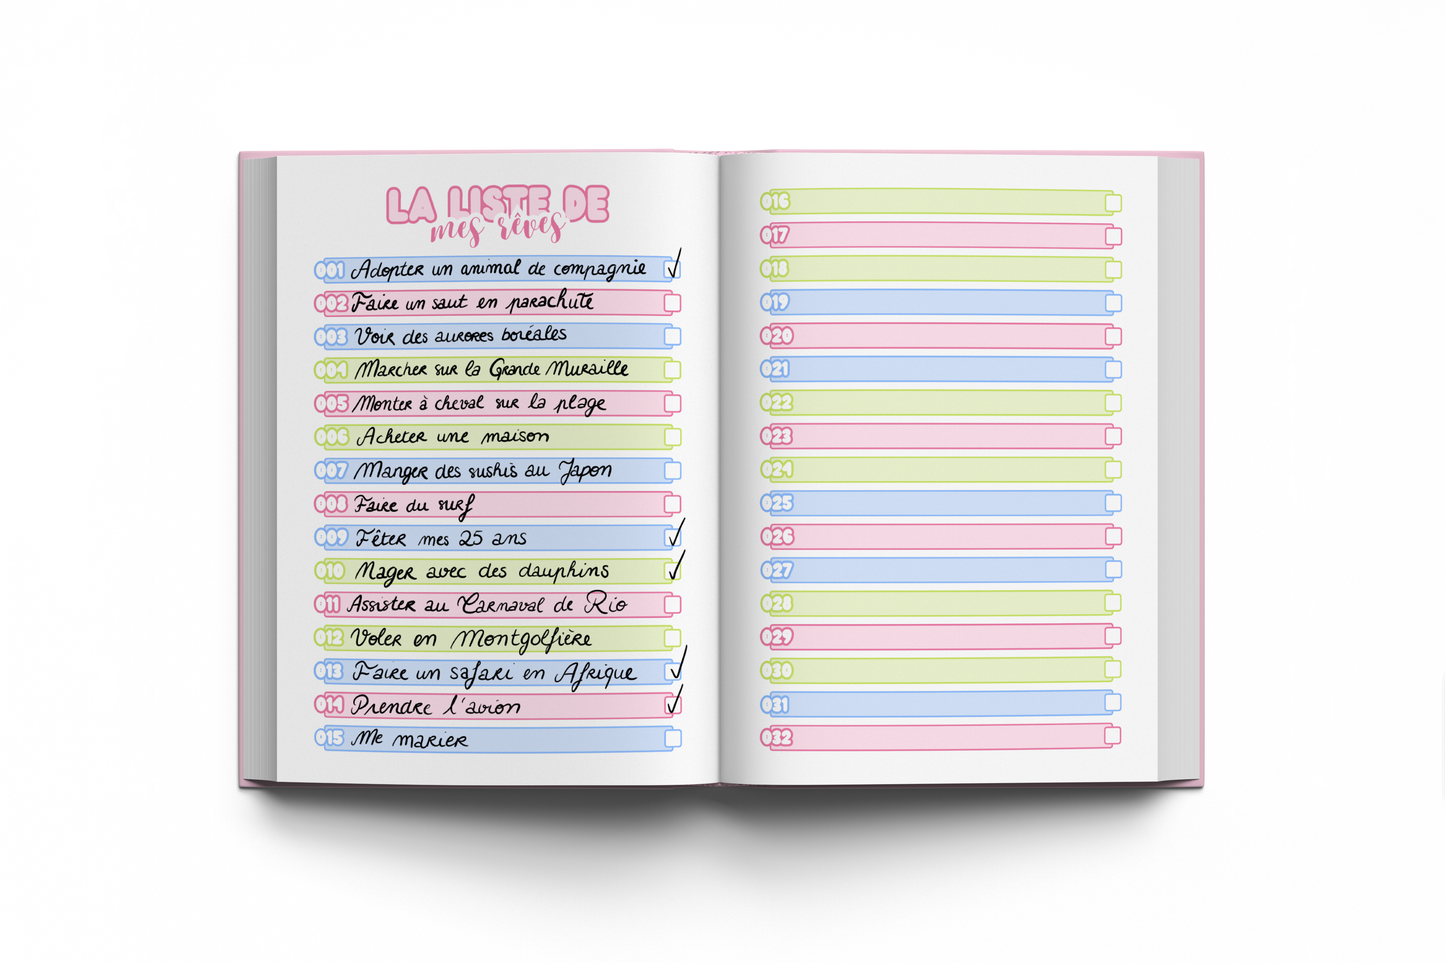 LA LISTE DE
mes rêves
001 Adopter un animal de compagnie ✓
002 Faire un saut en parachute
003 Voir des aurores boréales
004 Marcher sur la Grande Muraille
005 Monter à cheval sur la plage
006 Acheter une maison
007 Manger des sushis au Japon
008 Faire du surf
009 Fêter mes 25 ans ✓
010 Nager avec des dauphins ✓
011 Assister au Carnaval de Rio
012 Voler en Montgolfière
013 Faire un safari en Afrique ✓
014 Prendre l'avion ✓
015 Me marier
016
017
018
019
020
021
022
023
024
025
026
027
028
029
030
031
032